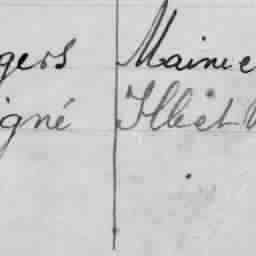 gers Maine e
igné Ille et V